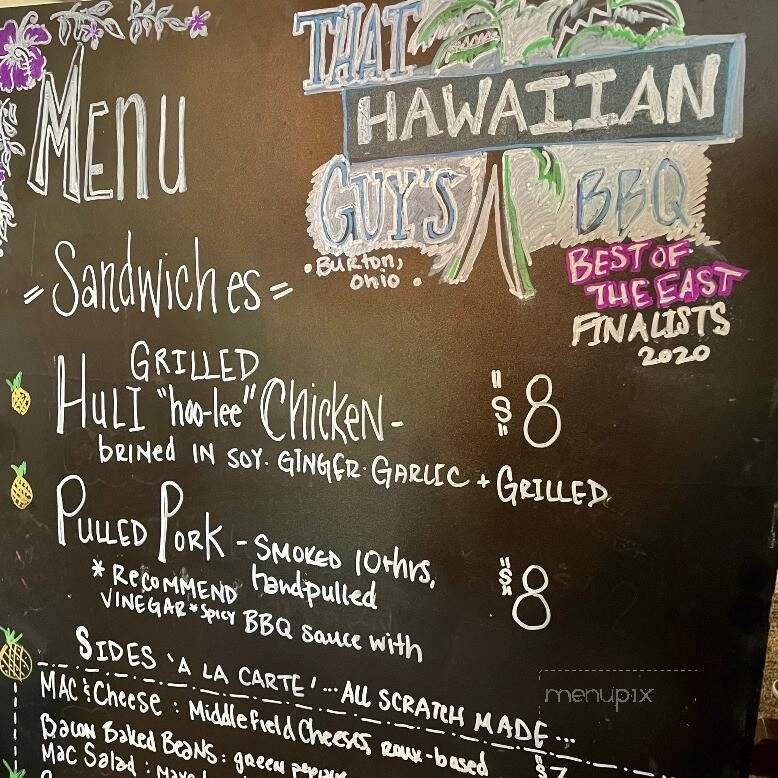 THAI
MENU
HAWAIIAN
GUY'S BBQ
• BURTON, OHIO •
BEST OF
THE EAST
FINALISTS
2020
= Sandwiches =
GRILLED
HULI "hoo-lee" CHICKEN - "$" 8
BRINED IN SOY. GINGER. GARLIC + GRILLED
PULLED PORK - SMOKED 10+hrs, "$" 8
hand-pulled
* RECOMMEND
VINEGAR * SPICY BBQ sauce with
SIDES 'A LA CARTE' ... ALL SCRATCH MADE ...
MAC & CHEESE : Middlefield Cheeses roux-based
Bacon Baked Beans : green
Mac Salad :
menupix